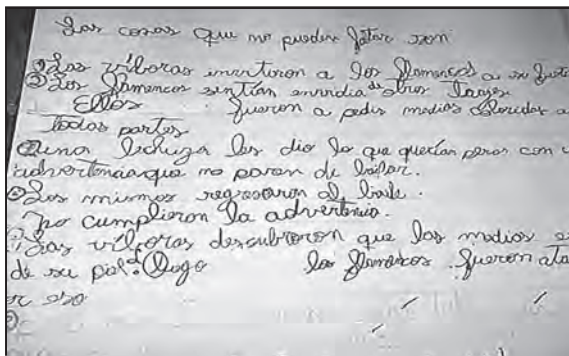 Las cosas que no pueden faltar son
① Las víboras invitaron a los flamencos a su
② Los flamencos sentían envidia de otros trajes.
Ellos fueron a pedir medias coloridas a
todas partes
una lechuza les dio lo que querían peros con
advertencia que no paren de bailar.
Los mismos regresaron al baile.
No cumplieron la advertencia.
Las víboras descubrieron que las medias
de su piel. Luego los flamencos fueron
eso